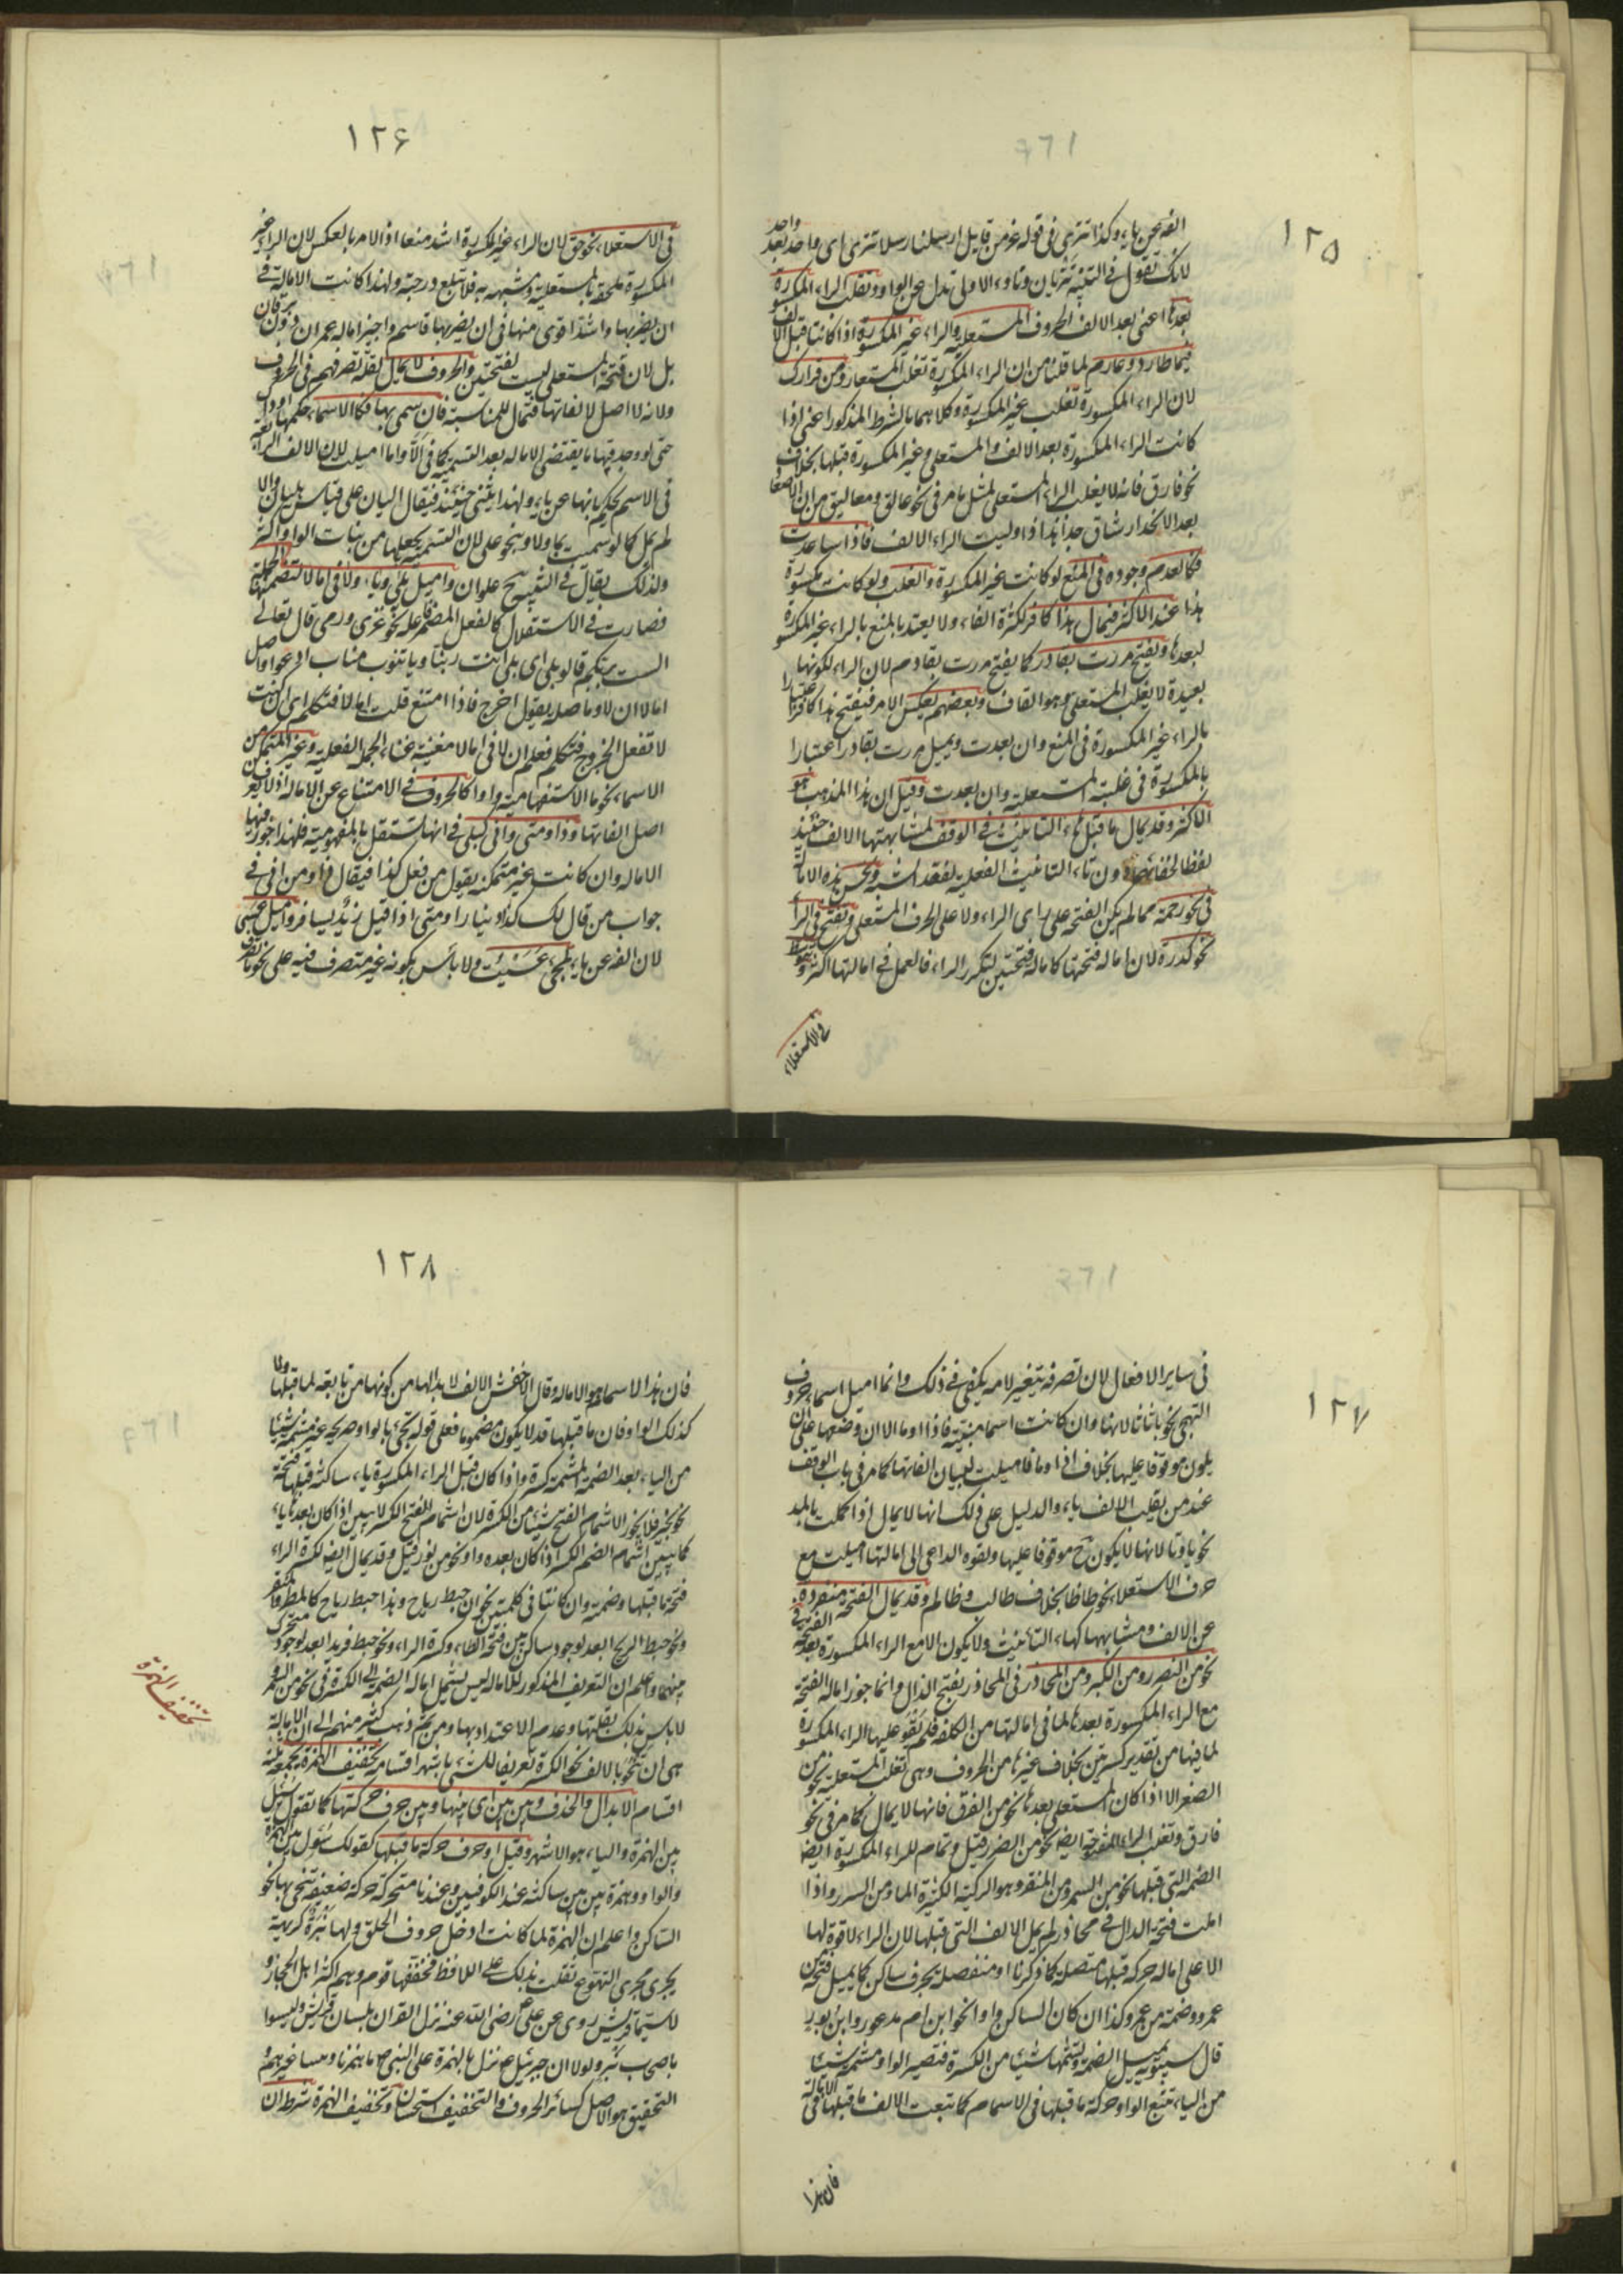 ١٢٥
الفه عن ياء وكذا تترى فى قوله عز من قايل ارسلنا رسلنا تترى اى واحدا بعد واحد
لانك تقول فى التثنية تتريان وتاؤه الاولى بدل عن الواو وتغلب الراء المكسورة
بعدها اعنى بعد الالف الحروف المستعلية والراء غير المكسورة اذا كانتا قبل الالف
فيمال طارد وغارم لما قلنا من ان الراء المكسورة تغلب المستعلى ومن قرارك
لان الراء المكسورة تغلب غير المكسورة وكلاهما بالشرط المذكور اعنى اذا
كانت الراء المكسورة بعد الالف والمستعلى وغير المكسورة قبلها بخلاف
نحو فارق فانه لا يغلب الراء المستعلى لمثل ما مر فى نحو عالق ومعاليق من ان الاصعاد
بعد الانحدار شاق جدا هذا اذا وليت الراء الالف فاذا تباعدت
فكالعدم وجوده فى المنع لو كانت غير المكسورة والغلب لو كانت مكسورة
هذا عند الاكثر فيمال هذا كافر لكثرة الفاء ولا يعتد بالمنع بالراء غير المكسورة
لبعدها ويفتح مررت بقادر كما يفتح مررت بقادم لان الراء لكونها
بعيدة لا يغلب المستعلى وهو القاف وبعضهم يعكس الامر فيفتح هذا كافر اعتبارا
بالراء غير المكسورة فى المنع وان بعدت ويميل مررت بقادر اعتبارا
بالمكسورة فى غلبة المستعلية وان بعدت وقيل ان هذا المذهب هو
الاكثر وقد يمال ما قبل هاء التانيث فى الوقف لمشابهتها الالف حينئذ
لفظا لخفائهما دون تاء التانيث الفعلية لفقد الشبه وتحسن هذه الامالة
فى نحو رحمة مما لم يكن الفتحة على راى الراء ولا على الحرف المستعلى وتقبح فى الراء
نحو كدرة لان امالة فتحتها كامالة فتحتين لتكرر الراء فالعمل فى امالتها اكثر وتتوسط
فى الاستعلاء
١٢۶
فى الاستعلاء نحو حقة لان الراء غير المكسورة اشد منعا اذ الامر بالعكس لان الراء غير
المكسورة ملحقة بالمستعلية ومشبهة به فلا تبلغ درجته ولهذا كانت الامالة فى
ان يضربها راشد اقوى منها فى ان يضربها قاسم واجيز امالة عمران دون برقان
بل لان فتحة المستعلى ليست كفتحتين والحروف لا يمال لقلة تصرفهم فى الحروف
ولانه لا اصل لالفاتها فتمال للمناسبة فان سمى بها فكالاسماء حكمها
حتى لو وجد فيها ما يقتضى الامالة بعد التسمية كما فى الا واما اميلت لان الالف الرابعة
فى الاسم يحكم بانها عن ياء ولهذا يثنى حينئذ فيقال اليان على قياس بليان والا
لم يمل كما لو سميت بما ولا وبنحو على لان التسمية يجعلها من بنات الواو اكثر
ولذلك يقال فى التثنية علوان واميل بلى ويا ولا فى امالا لتضمنها الجملة
فصارت فى الاستقلال كالفعل المضمر فاعله نحو غزى ورمى قال تعالى
الست بربكم قالوا بلى اى بلى انت ربنا ويا تنوب مناب ادعو واصل
امالا ان لا وما صلة يقول اخرج فاذا امتنع قلت امالا فتكلم اى ان كنت
لا تفعل الخروج فتكلم فعلم ان لا فى امالا مغنية غناء الجملة الفعلية وغير المتمكن من
الاسماء نحو ما الاستفهامية واذا كالحروف فى الامتناع عن الامالة اذ لا يعرف من
اصل الفاتها وذا ومتى وانى كبلى فى انها تستقل بالمفهومية فلهذا جوز فيها
الامالة وان كانت غير متمكنة يقول من فعل كذا فيقال ذا ومن انى فى
جواب من قال لك كذا دينارا ومتى اذا قيل زيد يسافر واميل عسى
لان الفه عن ياء لمجىء عسيت ولا باس بكونه غير متصرف فيه على نحو ما تصرف
١٢٧
فى ساير الافعال لان تصرفه بتغير لامه يكفى فى ذلك وانما اميل اسماء حروف
التهجى نحو با تا ثا لانها وان كانت اسما مبنية فاذا او ما الا ان وضعها على ان
يكون موقوفا عليها بخلاف اذا وما فاميلت لبيان الفاتها كما مر فى باب الوقف
عند من يقلب الالف ياء والدليل على ذلك انها لا يمال اذا كملت بالمد
نحو باء وتاء لانها لا يكون ح موقوفا عليها ولقوة الداعى الى امالتها اميلت مع
حرف الاستعلاء نحو طا ظا بخلاف طالب وظالم وقد يمال الفتحة منفردة
عن الالف ومشابهها كهاء التانيث ولا يكون الا مع الراء المكسورة بعد الفتحة فى
نحو من الضرر ومن الكبر ومن المحاذر فى المحاذر بفتح الذال وانما جوز امالة الفتحة
مع الراء المكسورة بعدها لما فى امالتها من الكلفة فلم تقو عليها الا الراء المكسورة
لما فيها من تقدير كسرتين بخلاف غيرها من الحروف وهى تغلب المستعلية نحو من
الصغر الا اذا كان المستعلى بعدها نحو من الفرق فانها لا يمال كما مر فى نحو
فارق وتغلب الراء المفتوحة ايضا نحو من الضرر قيل وتمام للراء المكسورة ايضا
الضمة التى قبلها نحو من السمر ومن المنقر وهو الركية الكثيرة الماء ومن السرر واذا
املت فتحة الذال فى محاذر لم يمل الالف التى قبلها لان الراء لا قوة لها
الا على امالة حركة قبلها متصلة كما ذكرنا او منفصلة بحرف ساكن كما يميل فتحة من
عمرو وضمة من عمرو وكذا ان كان الساكن واوا نحو ابن ام مذعور وابن بور
قال سيبويه يميل الضمة ويشمها شيئا من الكسرة فتصير الواو مشمة شيئا
من الياء تتبع الواو حركة ما قبلها فى الاشمام كما تبعت الالف ما قبلها فى الامالة
فان هذا
١٢٨
فان هذا الاسماء هو الامالة وقال الاخفش الالف لا بد لها من كونها من تابعة لما قبلها ولا
كذلك الواو فان ما قبلها قد لا يكون مضموما فعلى قوله تجىء بالواو صريحة غير مشمة شيئا
من الياء بعد الضمة المشمة كسرة واذا كان قبل الراء المكسورة ياء ساكنة قبلها فتحة
نحو بخير فلا يجوز الاشمام الفتح شيئا من الكسرة لان اشمام الفتح الكسر لا يبين اذا كان بعدها ياء
كما يبين اشمام الضم الكسر اذا كان بعده واو نحو من نور قيل وقد يمال ايضا لكسرة الراء
فتحة ما قبلها وضمته وان كانتا فى كلمتين نحو ان خبط رياح وهذا خبط رياح كالمطر والمنقر
ونحو خبط الريح ابعد لوجود ساكن بين فتحة الطاء وكسرة الراء ونحو خبط فريد ابعد لوجود متحرك
بينهما واعلم ان التعريف المذكور للامالة ليس يشمل امالة الضمة الى الكسرة فى نحو من السمر
لا باس بذلك لقلتها وعدم الاعتداد بها ومن ثم ذهب كثير منهم الى ان الامالة
هى ان تنحو بالالف نحو الكسرة تعريفا للشىء باشهر اقسامه تخفيف الهمزة يجمعه ثلثة
تخفيف الهمزة
اقسام الابدال والحذف وبين بين اى بينها وبين حرف حركتها كما تقول سئل
بين الهمزة والياء هو الاشهر وقيل او حرف حركة ما قبلها كقولك سئول بين الهمزة
والواو وهمزة بين بين ساكنة عند الكوفيين وعندنا متحركة حركة ضعيفة تنحى بها نحو
الساكن واعلم ان الهمزة لما كانت ادخل حروف الحلق ولها نبرة كريهة
يجرى مجرى التهوع ثقلت بذلك على اللافظ فخففها قوم وهم اكثر اهل الحجاز و
لا سيما قريش روى عن على رضى الله عنه نزل القران بلسان قريش وليسوا
باصحاب نبر ولولا ان جبرئيل ع نزل بالهمزة على النبى ص ما همزنا وحققها غيرهم و
التحقيق هو الاصل كسائر الحروف والتخفيف استحسان وتخفيف الهمزة شرطه ان